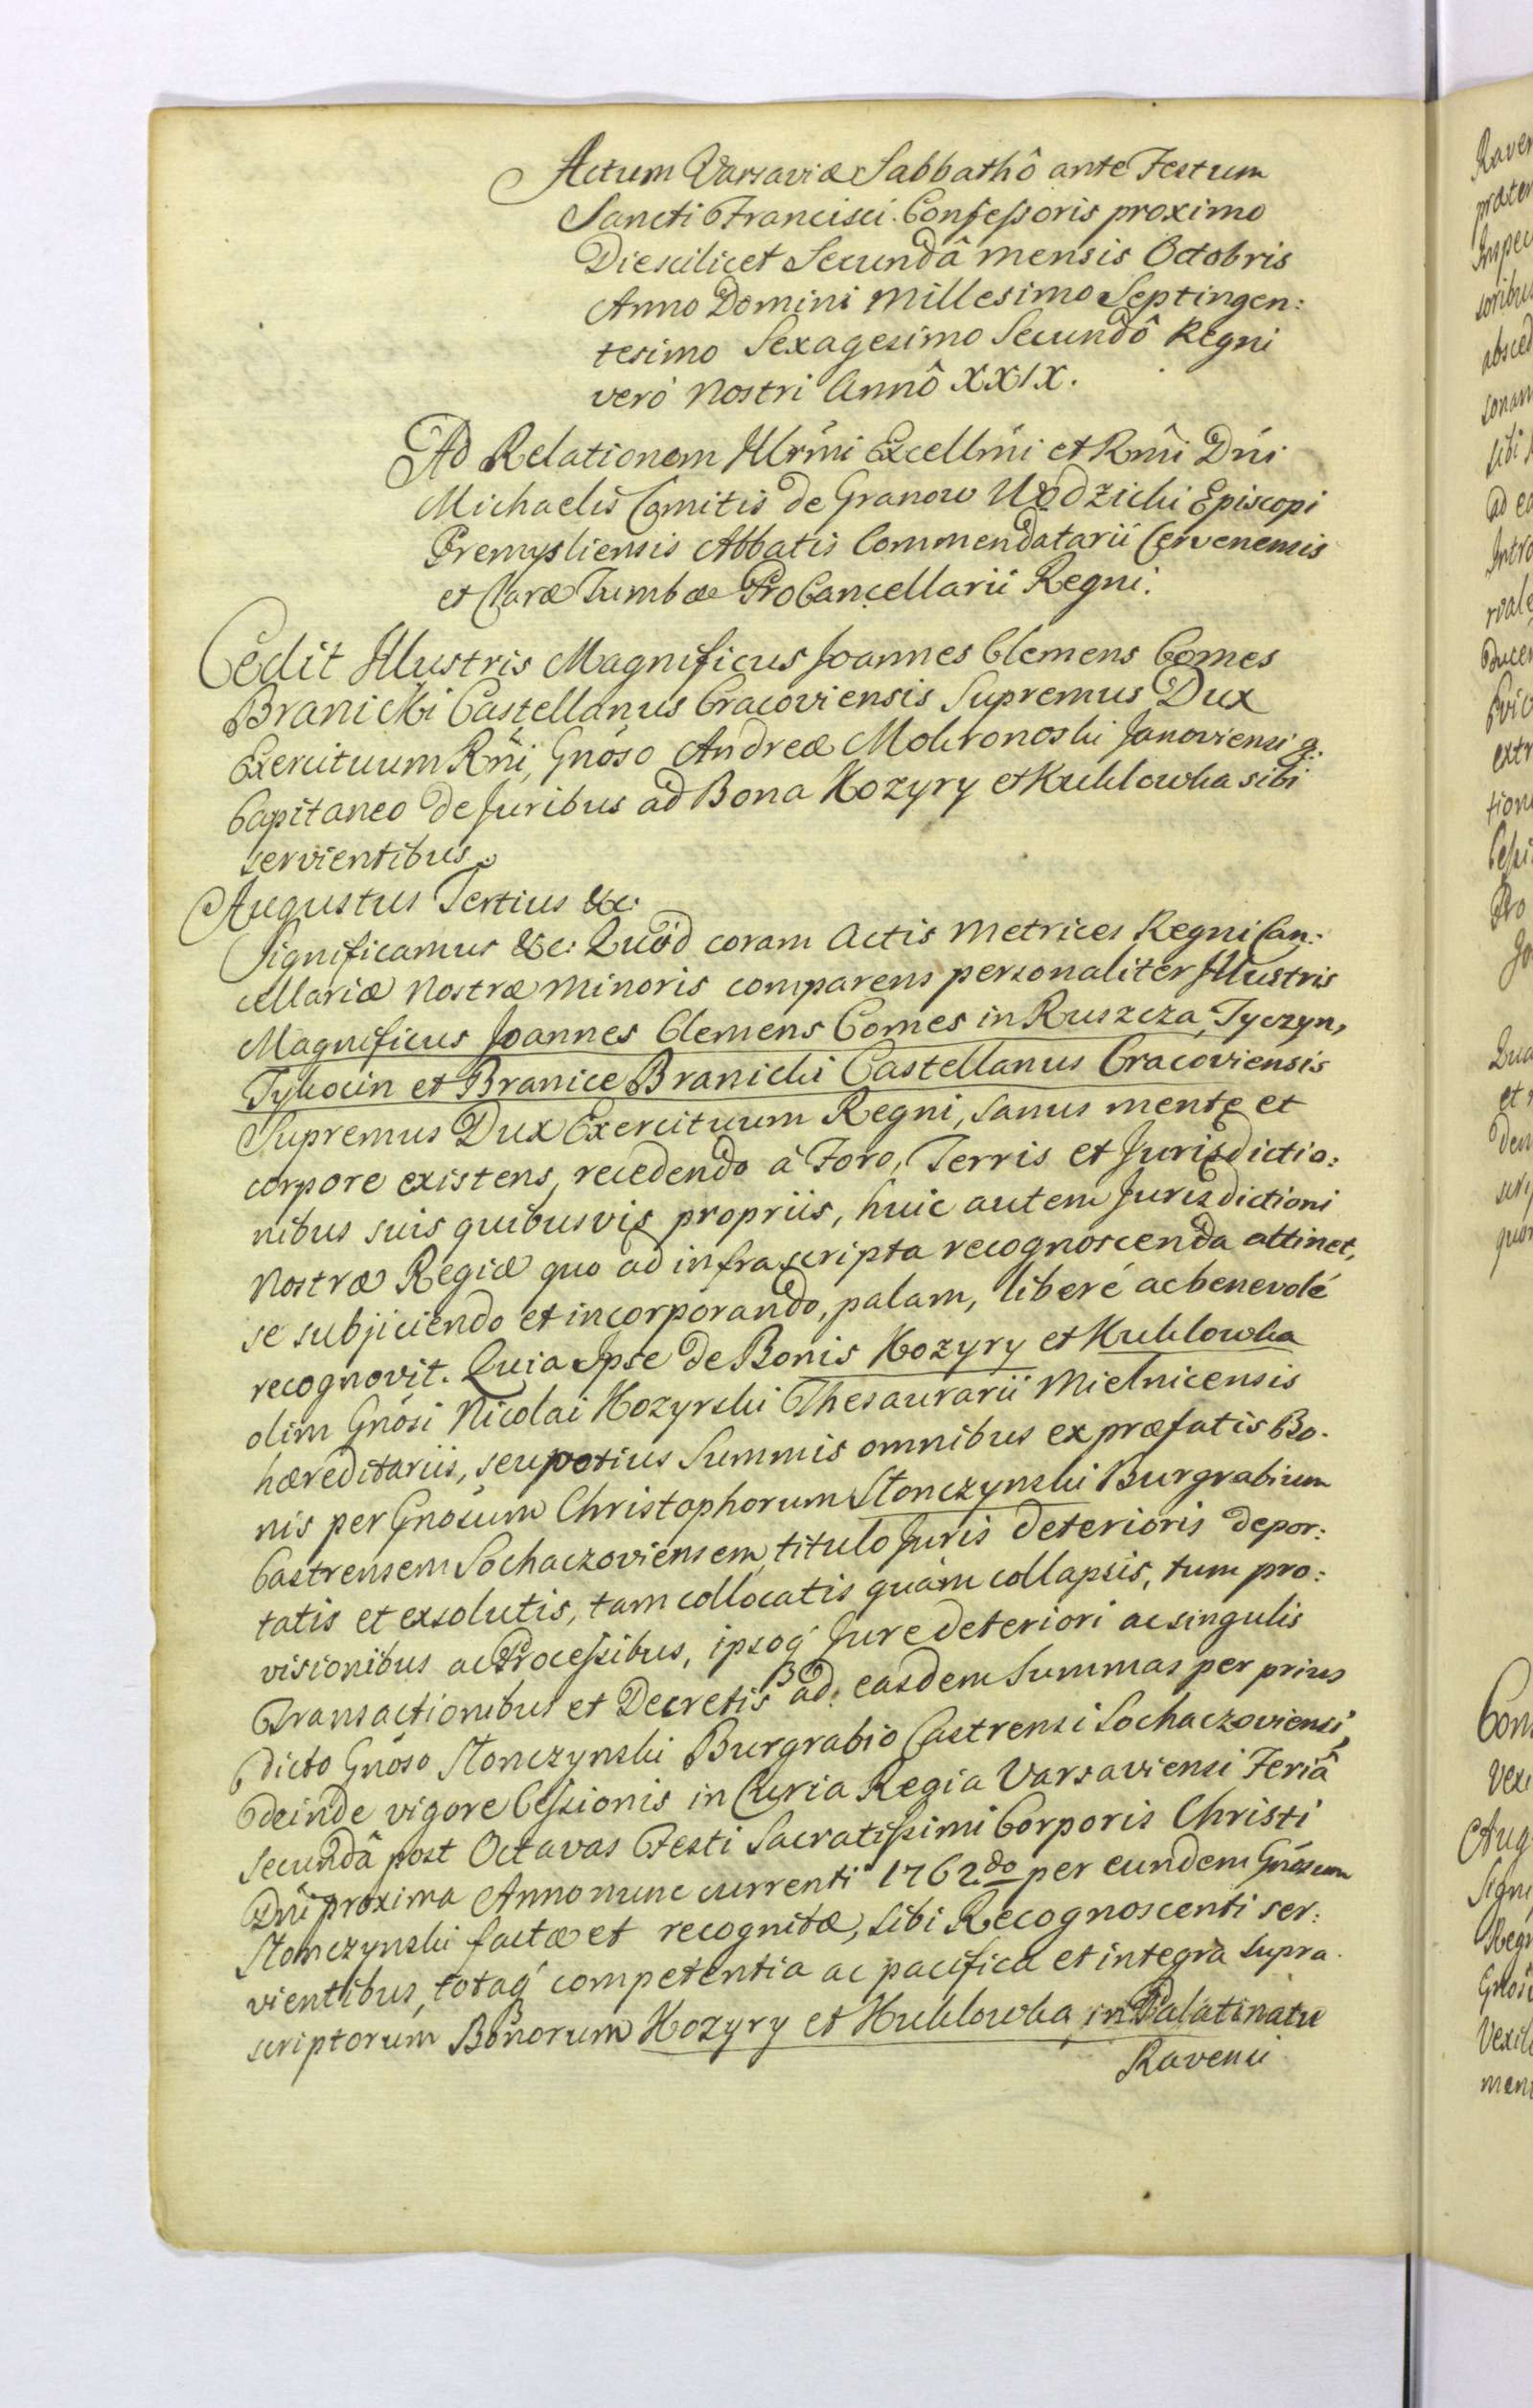 Actum Varsaviæ Sabbathô ante Festum
Sancti Francisci Confessoris proximo
Die scilicet Secundâ mensis Octobris
Anno Domini Millesimo Septingen:
tesimo Sexagesimo Secundô Regni
verò Nostri Annô XXIX.
Ad Relationem Illrmi Excellmi et Rmi Dni
Michaelis Comitis de Granow Wodzicki Episcopi
Premysliensis Abbatis Commendatarii Cervenensis
et Claræ Tumbæ ProCancellarii Regni.
Cedit Illustris Magnificus Joannes Clemens Comes
Branicki Castellanus Cracoviensis Supremus Dux
Exercituum Rni, Gnoso Andreæ Mokronoski Janoviensi
Capitaneo de Juribus ad Bona Kozyry et Kuklowka sibi
servientibus.
Augustus Tertius &c:
Significamus &c: Quòd coram Actis Metrices Regni Can:
cellariæ Nostræ Minoris comparens personaliter Illustris
Magnificus Joannes Clemens Comes in Ruszcza, Tyczyn,
Tykocin et Branice Branicki Castellanus Cracoviensis
Supremus Dux Exercituum Regni, sanus mente et
corpore existens, recedendo à Foro, Terris et Jurisdictio:
nibus suis quibusvis propriis, huic autem Jurisdictioni
Nostræ Regiæ quo ad infrascripta recognoscenda attinet,
se subjiciendo et incorporando, palam, liberé ac benevolé
recognovit. Quia Ipse de Bonis Kozyry et Kuklowka
olim Gnosi Nicolai Kozyrski Thesaurarii Mielnicensis
hæreditariis, seu potius Summis omnibus ex præfatis Bo.
nis per Gnosum Christophorum Stonczynski Burgrabium
Castrensem Sochaczoviensem, titulo Juris deterioris depor:
tatis et exsolutis, tam collocatis quàm collapsis, tum pro:
visionibus ac Processibus, ipsoq́ Jure deteriori ac singulis
Transactionibus et Decretis ad easdem Summas per prius
dicto Gnoso Stonczynski Burgrabio Castrensi Sochaczoviensi,
deinde vigore Cessionis in Curia Regia Varsaviensi Feriâ
secundâ post Octavas Festi Sacratissimi Corporis Christi
Dni proxima Anno nunc currenti 1762do per eundem Gnosum
Stonczynski factæ et recognitæ, sibi Recognoscenti ser:
vientibus, totaq́ competentia ac pacifica et integra supra.
scriptorum Bonorum Kozyry et Kuklowka in Palatinatu